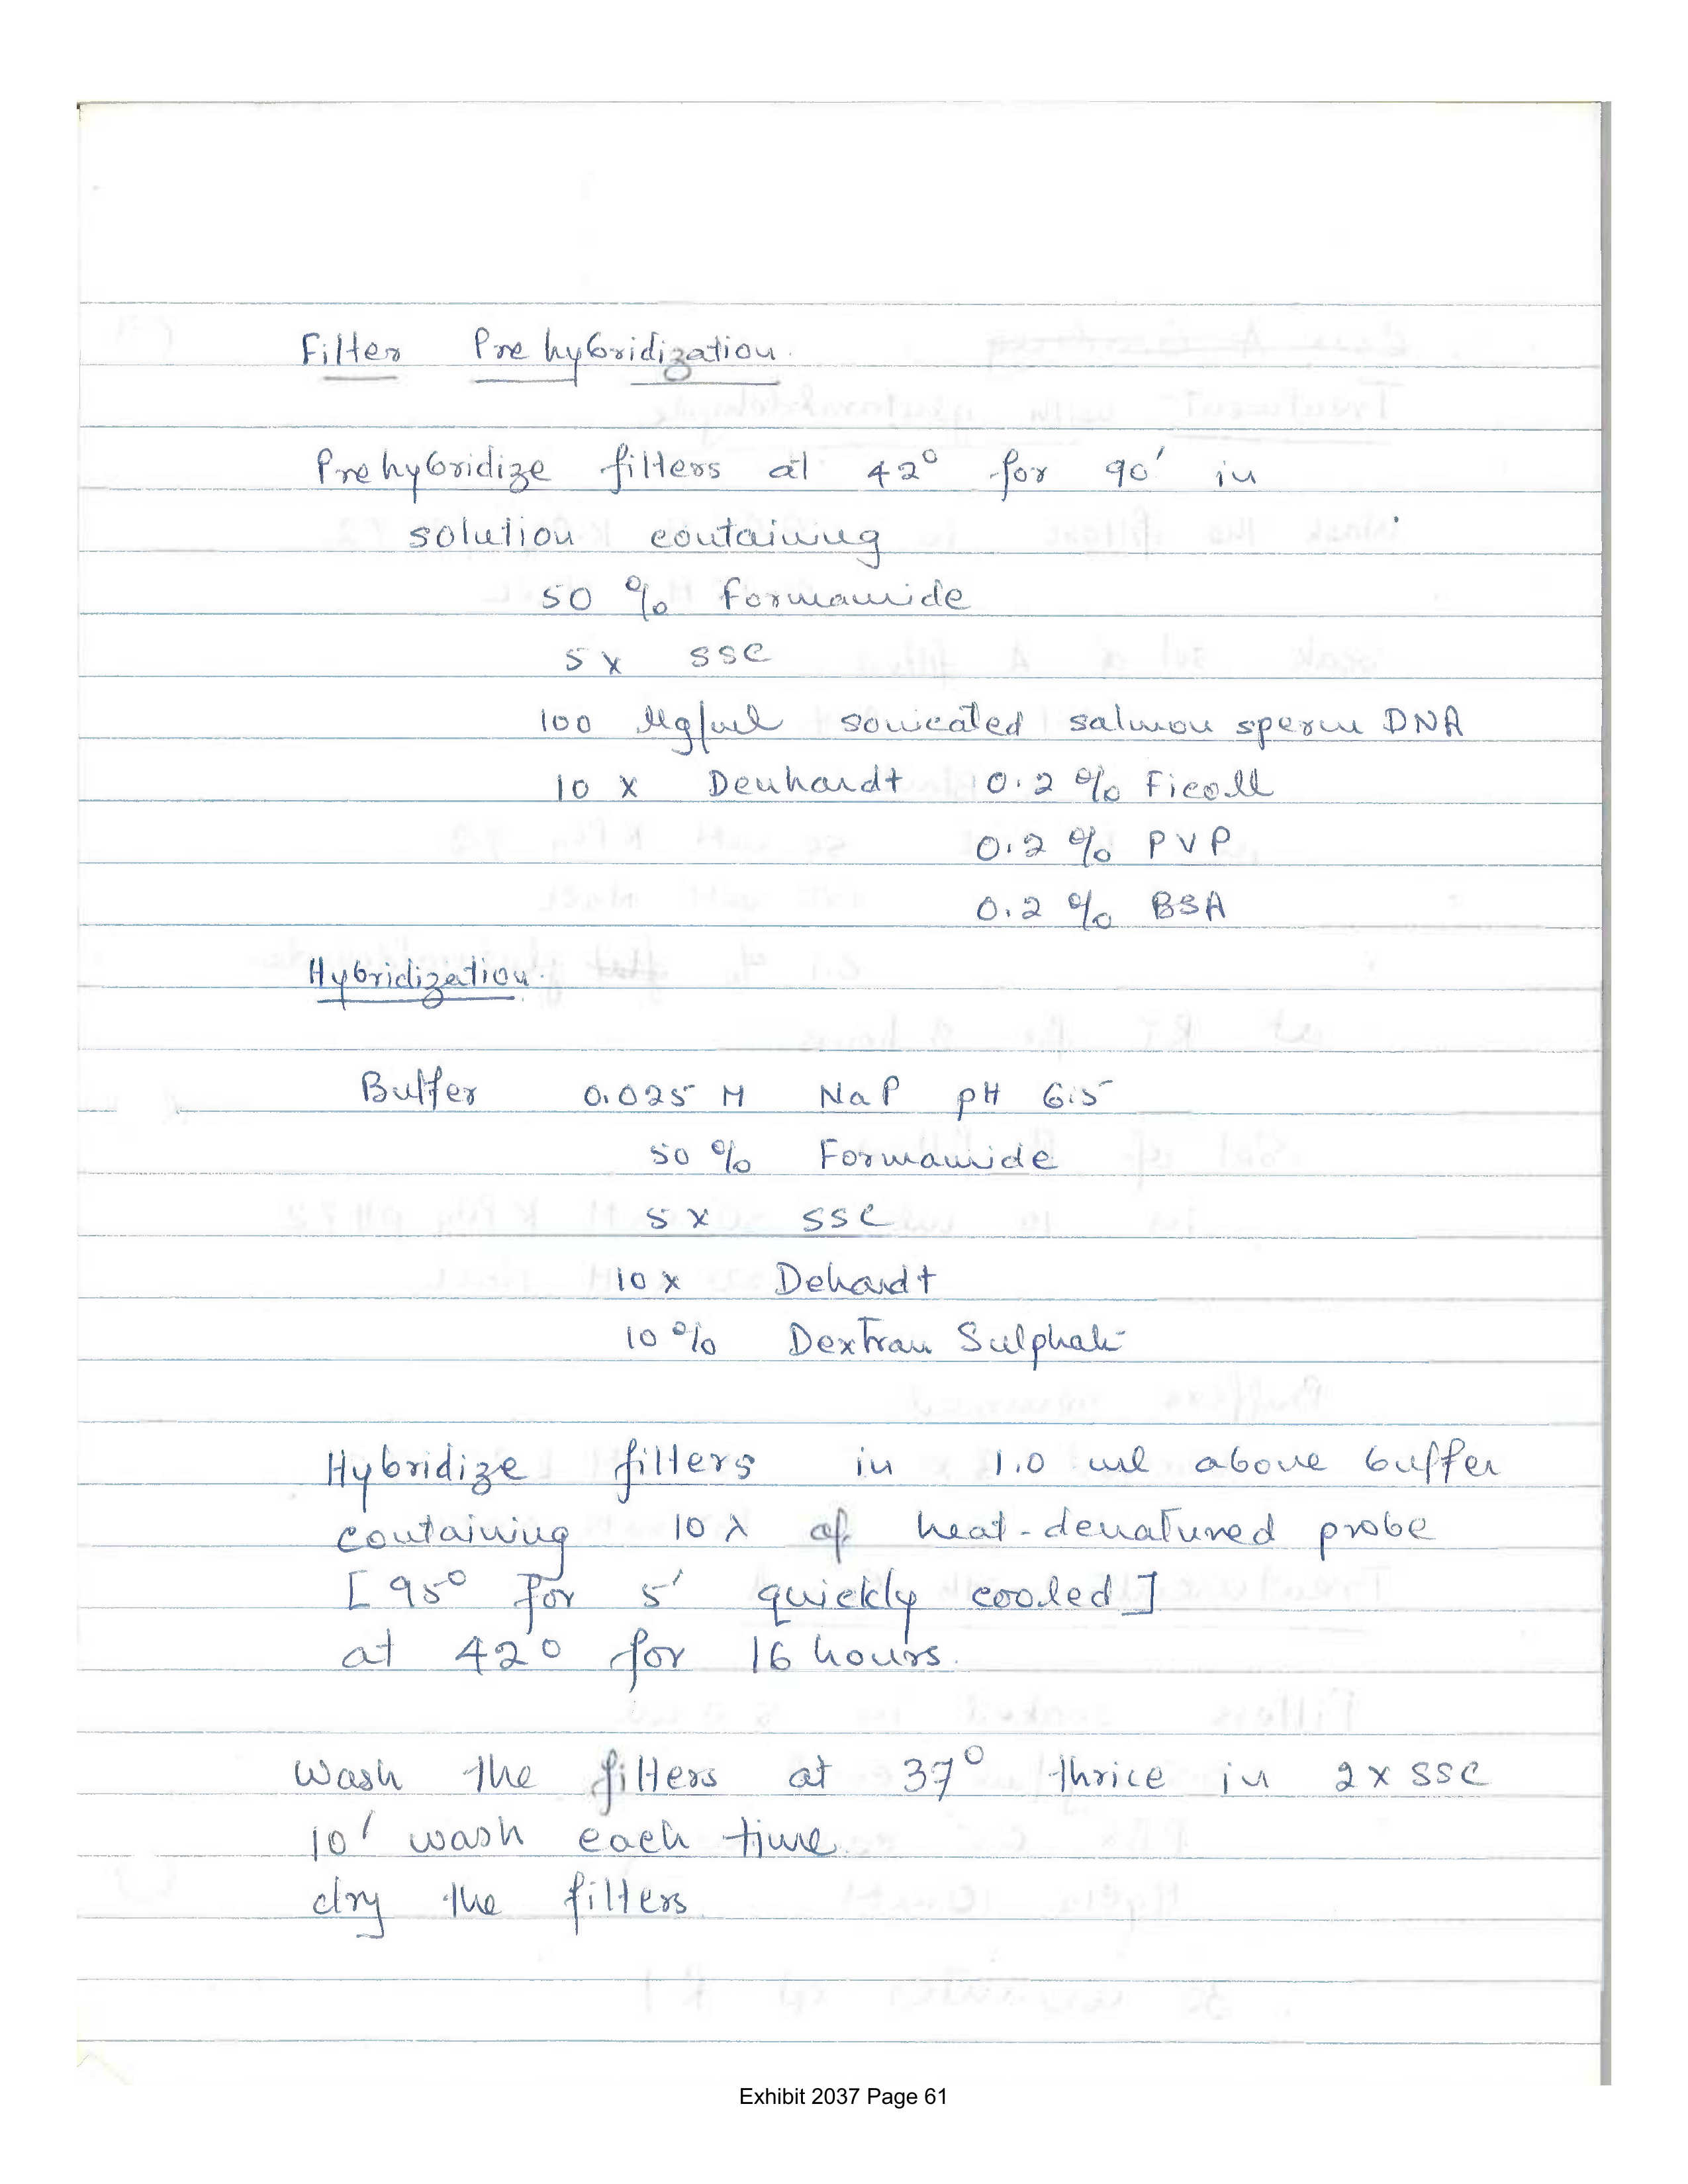 Filter Prehybridization.
Prehybridize filters at 42° for 90' in
solution containing
50 % Formamide
5 x SSC
100 µg/ml sonicated salmon sperm DNA
10 x Denhardt 0.2 % Ficoll
0.2 % PVP
0.2 % BSA
Hybridization.
Buffer 0.025 M NaP pH 6.5
50 % Formamide
5 x SSC
10 x Dehardt
10 % Dextran Sulphate
Hybridize filters in 1.0 ml above buffer
containing 10 λ of heat-denatured probe
[95° for 5' quickly cooled]
at 42° for 16 hours.
Wash the filters at 37° thrice in 2 x SSC
10' wash each time
dry the filters
Exhibit 2037 Page 61